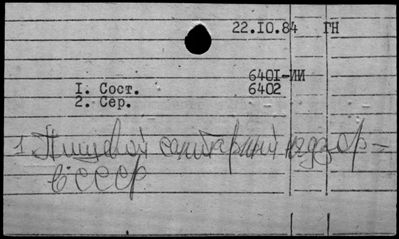 22.IO.84 ГН
640I-ИИ
I. Сост. 6402
2. Сер.
1. Пищевой санитарный надзор -
в СССР